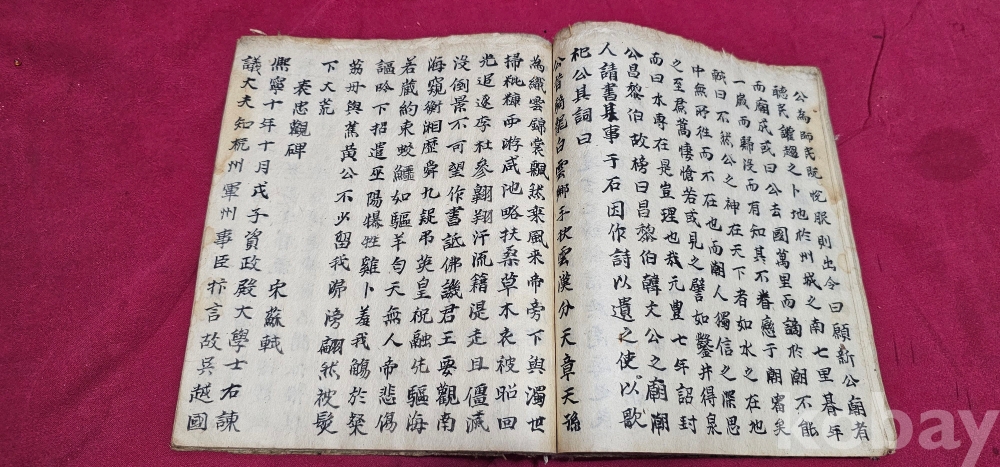 公為師民既悅服則出令曰願新公廟者
聽民讙趨之卜地於州城之南七里朞年
而廟成或曰公去國萬里而謫於潮不能
一歲而歸沒而有知其不眷戀于潮審矣
軾曰不然公之神在天下者如水之在地
中無所往而不在也而潮人獨信之深思
之至焄蒿悽愴若或見之譬如鑿井得泉
而曰水專在是豈理也哉元豐七年詔封
公昌黎伯故榜曰昌黎伯韓文公之廟潮
人請書其事于石因作詩以遺之使以歌
祀公其詞曰
公昔騎龍白雲鄉手抉雲漢分天章天孫
為織雲錦裳飄然乘風來帝旁下與濁世
掃秕糠西游咸池略扶桑草木衣被昭回
光追逐李杜參翱翔汗流籍湜走且僵滅
沒倒景不可望作書詆佛譏君王要觀南
海窺衡湘歷舜九疑弔英皇祝融先驅海
若藏約束蛟鱷如驅羊勻天無人帝悲傷
謳吟下招遣巫陽犦牲雞卜羞我觴於粲
荔丹與蕉黃公不少留我歸滂翩然被髮
下大荒
表忠觀碑 宋蘇軾
熙寧十年十月戊子資政殿大學士右諫
議大夫知杭州軍州事臣抃言故吳越國
kobay